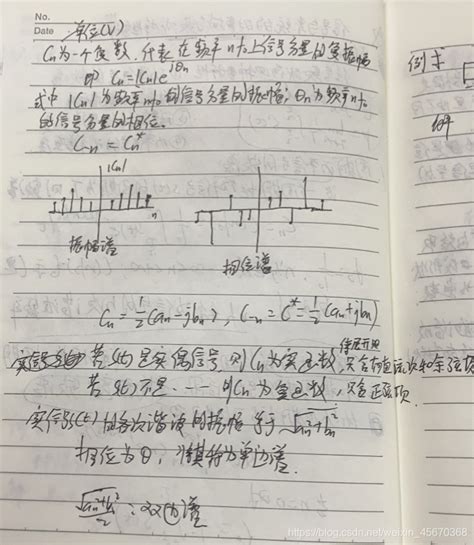 No.
Date
单位(V)
Cn为一个复数,代表在频率nf₀上信号分量的复振幅
即 Cn=|Cn|e^jθn
式中 |Cn|为频率nf₀的信号分量的振幅;θn为频率nf₀
的信号分量的相位。
C₋n = Cn*
|Cn|
n
振幅谱
相位谱
Cn = 1/2(an-jbn), C₋n = C* = 1/2(an+jbn)
实信号 若s(t)是实偶信号 则Cn为实函数,只含有直流和余弦项
若s(t)不是 --- 则Cn为复函数,
实信号s(t)的各次谐波的振幅等于√(an²+bn²)
相位为θ, 称为单边谱.
√(an²+bn²)/2 : 双边谱
例
https://blog.csdn.net/weixin_45670368